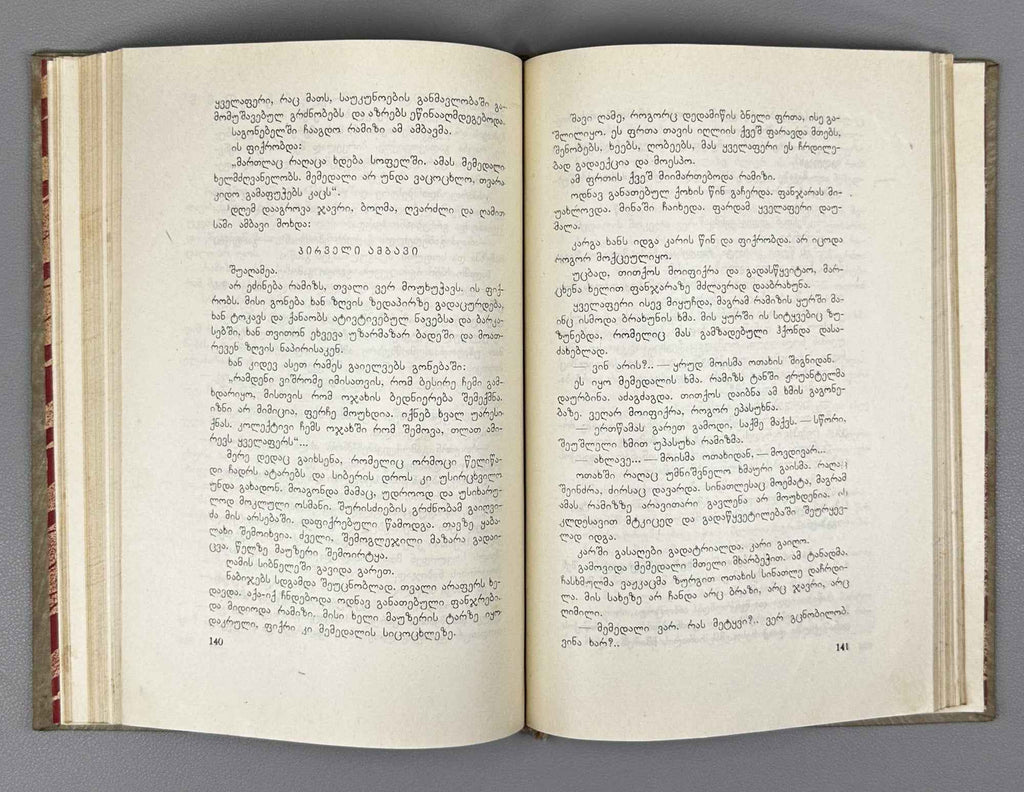 ყველაფერი, რაც მათს, საუკუნოების განმავლობაში გა-
მომუშავებულ გრძნობებს და აზრებს ეწინააღმდეგებოდა.
საგონებელში ჩააგდო რამიზი ამ ამბავმა.
ის ფიქრობდა:
„მართლაც რაღაცა ხდება სოფელში. ამას მემედალი
ხელმძღვანელობს. მემედალი არ უნდა ვაცოცხლო, თვარა
კიდო გამაფუჭებს კაცს“.
დღემ დააგროვა ჯავრი, ბოღმა, ღვარძლი და ღამით
სამი ამბავი მოხდა:
ᲞᲘᲠᲕᲔᲚᲘ ᲐᲛᲑᲐᲕᲘ
შუაღამეა.
არ ეძინება რამიზს, თვალი ვერ მოუხუჭავს. ის ფიქ-
რობს. მისი გონება ხან ზღვის ზედაპირზე გადაცურდება,
ხან ტოკავს და ქანაობს ატივტივებულ ნავებსა და ბარკა-
სებში, ხან თვითონ ეხვევა უზარმაზარ ბადეში და მოათ-
რევენ ზღვის ნაპირისაკენ.
ხან კიდევ ასეთ რამეს გაიელვებს გონებაში:
„რამდენი ვიშრომე იმისათვის, რომ ბესირე ჩემი გამ-
ხდარიყო, მისთვის რომ ოჯახის ბედნიერება შემექმნა.
იზნი არ მიმიცია, ფერჩე მოუხდია. იქნებ ხვალ უარესი
ქნას. კოლექტივი ჩემს ოჯახში რომ შემოვა, თლათ ამი-
რევს ყველაფერს“...
მერე დედაც გაიხსენა, რომელიც ორმოცი წელიწა-
დი ჩადრს ატარებს და სიბერის დროს კი უსირცხვილო
უნდა გახადონ. მოაგონდა მამაც, უდროოდ და უსიხარუ-
ლოდ მოკლული ოსმანი. შურისძიების გრძნობამ გაიღვი-
ძა მის არსებაში. დაფიქრებული წამოდგა. თავზე ყაბა-
ლახი შემოიხვია. ძველი, შემოგლეჯილი მაზარა გადაი-
ცვა. წელზე მაუზერი შემოირტყა.
ღამის სიბნელეში გავიდა გარეთ.
ნაბიჯებს სდგამდა შეუცნობლად. თვალი არაფერს ხე-
დავდა. აქა-იქ ჩნდებოდა ოდნავ განათებული ფანჯრები.
და მიდიოდა რამიზი. მისი ხელი მაუზერის ტარზე იყო
დაკრული, ფიქრი კი მემედალის სიცოცხლეზე.
140
შავი ღამე, როგორც დედამიწის ბნელი ფრთა, ისე გა-
შლილიყო. ეს ფრთა თავის იღლიის ქვეშ ფარავდა მთებს,
შენობებს, ხეებს, ღობეებს, მას ყველაფერი ეს ჩრდილე-
ბად გადაექცია და მოესპო.
ამ ფრთის ქვეშ მიიმართებოდა რამიზი.
ოდნავ განათებულ ქოხის წინ გაჩერდა. ფანჯარას მი-
უახლოვდა. მინაში ჩაიხედა. ფარდამ ყველაფერი დაუ-
მალა.
კარგა ხანს იდგა კარის წინ და ფიქრობდა. არ იცოდა
როგორ მოქცეულიყო.
უცბად, თითქოს მოიფიქრა და გადასწყვიტაო, მარ-
ცხენა ხელით ფანჯარაზე მძლავრად დააბრახუნა.
ყველაფერი ისევ მიყუჩდა, მაგრამ რამიზის ყურში მა-
ინც ისმოდა ბრახუნის ხმა. მის ყურში ის სიტყვებიც ზუ-
ზუნებდა, რომელიც მას გამზადებული ჰქონდა დასა-
ძახებლად.
— ვინ არის?.. — ყრუდ მოისმა ოთახის შიგნიდან.
ეს იყო მემედალის ხმა. რამიზს ტანში ჟრუანტელმა
დაურბინა. აძაგძაგდა. თითქოს დაიბნა ამ ხმის გაგონე-
ბაზე. ვეღარ მოიფიქრა, როგორ ეპასუხნა.
— ერთწამას გარეთ გამოდი, საქმე მაქვს. — სწორი,
შეუშლელი ხმით უპასუხა რამიზმა.
— ახლავე... — მოისმა ოთახიდან, — მოვდივარ...
ოთახში რაღაც უმნიშვნელო ხმაური გაისმა. რაღაც
შეინძრა, ძირსაც დავარდა. სინათლესაც მოემატა, მაგრამ
ამას რამიზზე არავითარი გავლენა არ მოუხდენია. ის
კლდესავით მტკიცედ და გადაწყვეტილებაში შეურყევ-
ლად იდგა.
კარში გასაღები გადატრიალდა. კარი გაიღო.
გამოვიდა მემედალი მთელი მხარბეჭით. ამ ტანადმა,
ჩასხმულმა ვაჟკაცმა ზურგით ოთახის სინათლე დაჩრდი-
ლა. მის სახეზე არ ჩანდა არც ბრაზი, არც ჯავრი, არც
ღიმილი.
— მემედალი ვარ. რას მეტყვი?.. ვერ გცნობილობ.
ვინა ხარ?..
141